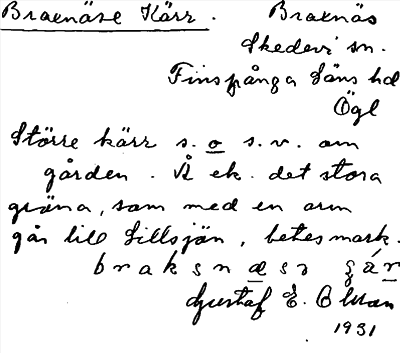 Braxnäse Kärr.
Braxnäs
Skedevi sn.
Finspånga läns hd
Ögl
Större kärr s. o s.v. om
gården. Å ek. det stora
gröna, som med en arm
går till Lillsjön, betesmark.
braksnæsə
Gustaf E. Olsson
1931